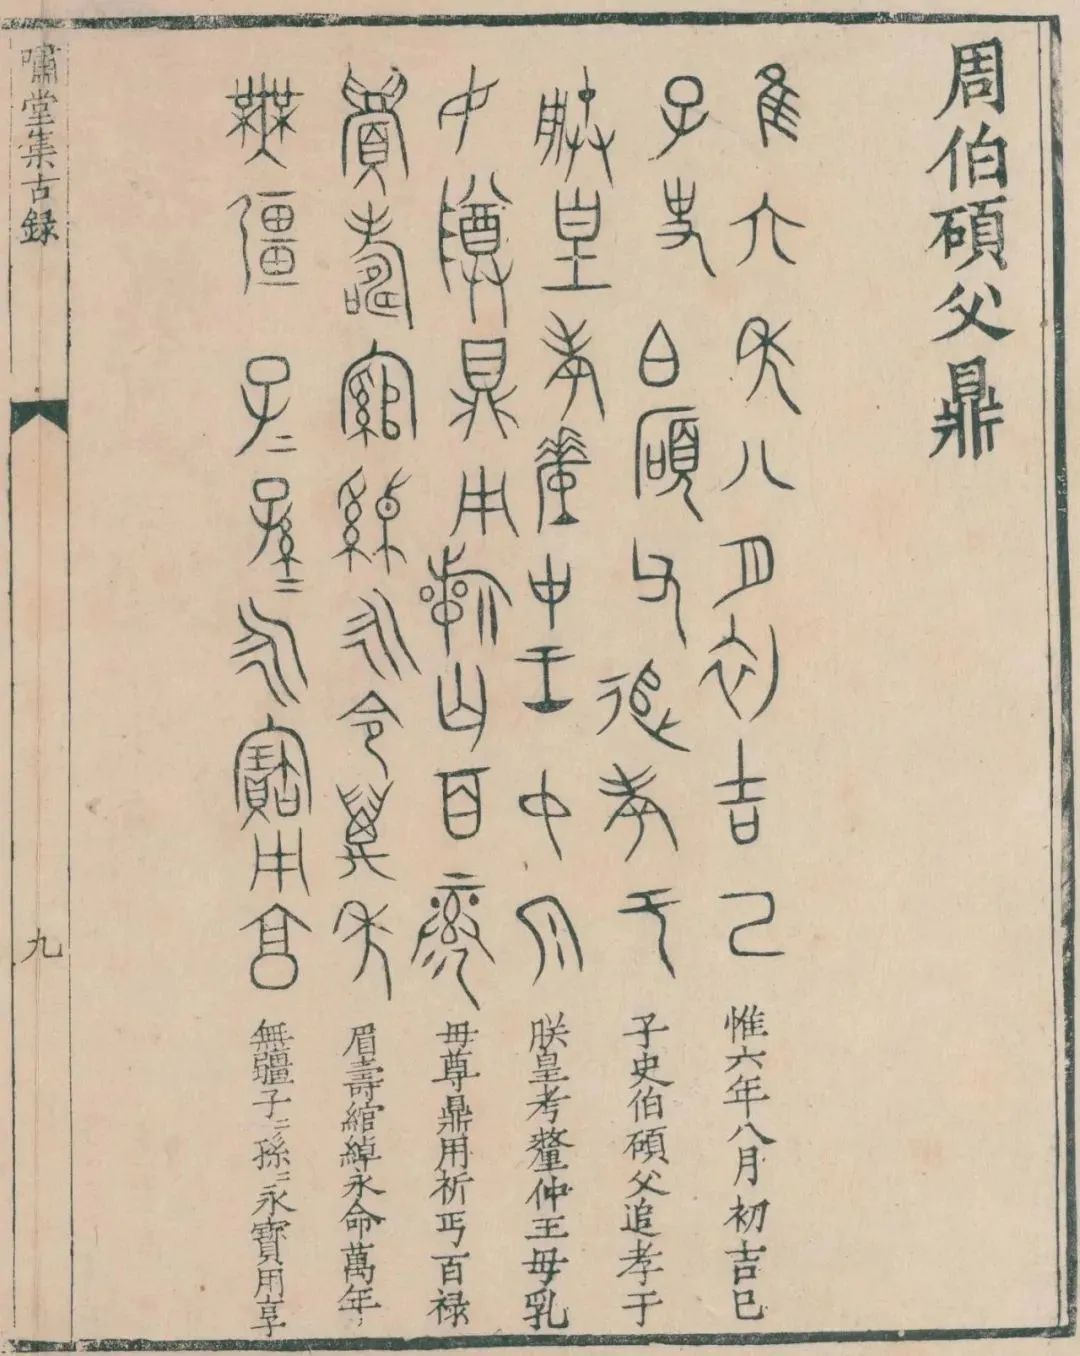 周伯碩父鼎
惟六年八月初吉巳
子史伯碩父追孝于
朕皇考釐仲王毋乳
毋尊鼎用祈丐百禄
眉壽綰綽永命萬年
無疆子二孫二永寶用享
嘯堂集古録
九